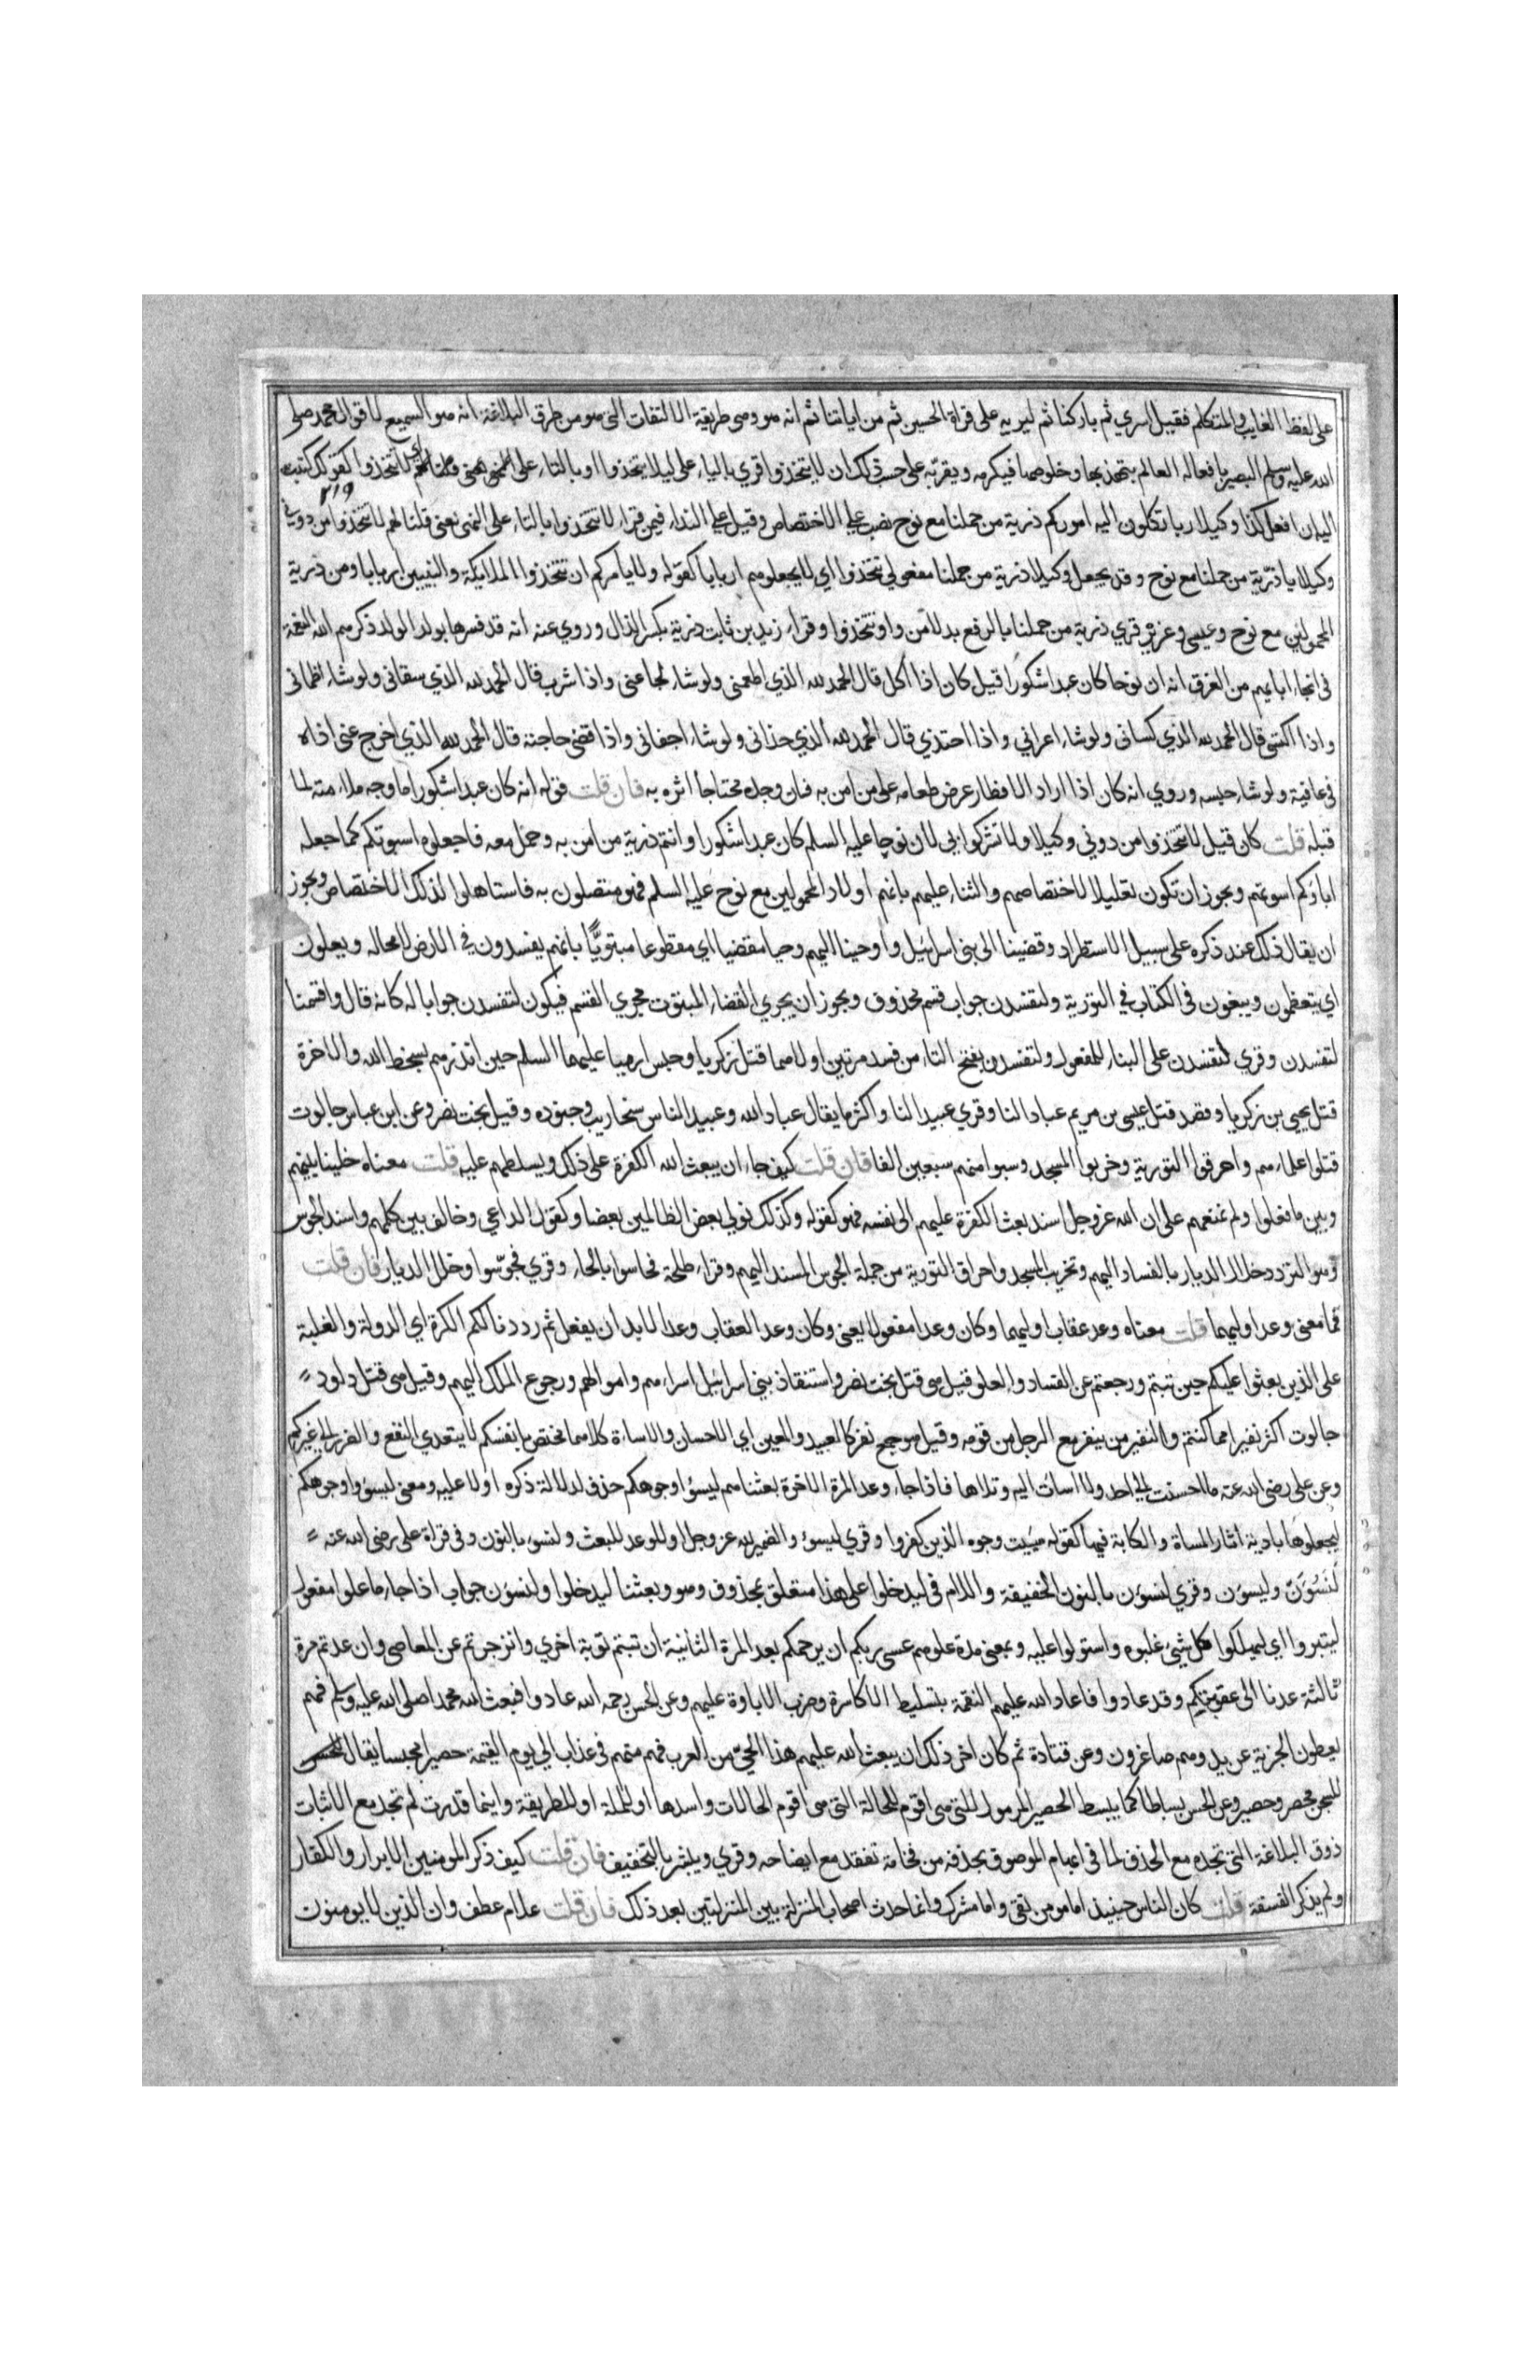 على لفظ الغايب والمتكلم فقيل اسري ثم باركنا ثم ليريه على قراة الحسين ثم من اياتنا ثم انه هو وهي طريقة الالتفات التي هو من طرق البلاغة انه هو السميع لاقوال محمد صلى
الله عليه وسلم البصير بافعاله العالم بتهذبها وخلوصها فيكرمه ويقربه على حسب ذلك ان لا يتخذوا قري بالياء على ليلا يتخذوا وبالتاء على اي لا تتخذوا كقولك كتبت
اليه ان افعل كذا وكيلا ربا تكلون اليه اموركم ذرية من حملنا مع نوح نصب على الاختصاص وقيل على النداء فيمن قراء لا تتخذوا بالتاء على النهي يعني قلنا لهم لا تتخذوا من دوني
٢١٩
وكيلا يا ذرّية من حملنا مع نوح وقد يجعل وكيلا ذرية من حملنا مفعولي تتخذوا اي لا يجعلوهم اربابا كقوله ولا يأمركم ان تتخذوا الملايكة والنبيين اربابا ومن ذرية
المحمولين مع نوح وعيسى وعزير قري ذرية من حملنا بالرفع بدلا من واو تتخذوا وقراء زيد بن ثابت ذرية بكسر الذال وروي عنه انه قد فسرها بولد الولد ذكرهم الله النعمة
في انجاء ابايهم من الغرق انه ان نوحا كان عبدا شكورا قيل كان اذا اكل قال الحمد لله الذي اطعمني ولو شاء لجاعني واذا شرب قال الحمد لله الذي سقاني ولو شاء اظماني
واذا اكتسى قال الحمد لله الذي كساني ولو شاء اعراني واذا احتذي قال الحمد لله الذي حذاني ولو شاء اجفاني واذا قضى حاجته قال الحمد لله الذي اخرج عني اذاه
في عافية ولو شاء حبسه وروي انه كان اذا اراد الافطار عرض طعامه على من امن به فان وجده محتاجا اثره به فان قلت قوله انه كان عبدا شكورا ما وجه ملاءمته لما
قبله قلت كان قيل لا تتخذوا من دوني وكيلا ولا تشركوا بي لان نوحا عليه السلم كان عبدا شكورا وانتم ذرية من امن به وحمل معه فاجعلوه اسوتكم كما جعله
اباؤكم اسوتهم ويجوز ان تكون تعليلا لاختصاصهم والثناء عليهم بانهم اولاد المحمولين مع نوح عليه السلم فهو متصلون به فاستاهلوا لذلك الاختصاص ويجوز
ان يقال ذلك عند ذكره على سبيل الاستطراد وقضينا الى بني اسرائيل واوحينا اليهم وحيا مقضيا اي مقطوعا مبتوتا بانهم يفسدون في الارض لا محالة ويعلون
اي يتعظمون ويبغون في الكتاب في التورية ولتفسدن جواب قسم محذوف ويجوز ان يجري القضاء المبتوت مجري القسم فيكون لتفسدن جوابا له كانه قال واقسمنا
لتفسدن وقري لتفسدن على البناء للمفعول ولتفسدن بفتح التاء من فسد مرتين اولاهما قتل زكريا وحبس ارميا عليهما السلم حين انذرهم بسخط الله والاخرة
قتل يحيى بن زكريا وقصد قتل عيسى بن مريم عبادا لنا وقري عبيدا لنا واكثر ما يقال عباد الله وعبيد الناس سنحاريب وجنوده وقيل بخت نصر وعن ابن عباس جالوت
قتلوا علماءهم واحرقوا التورية وخربوا المسجد وسبوا منهم سبعين الفا فان قلت كيف جاء ان يبعث الله الكفرة على ذلك ويسلطهم عليه قلت معناه خلينا بينهم
وبين ما فعلوا ولم نمنعهم على ان الله عز وجل اسند بعث الكفرة عليهم الى نفسه فهو كقوله وكذلك نولي بعض الظالمين بعضا وكقول الداعي وخالف بين كلمهم واسند الجوس
وهو التردد خلال الديار بالفساد اليهم وتخريب المسجد واحراق التورية من جملة الجوس المسند اليهم وقراء طلحة فحاسوا بالحاء وقري فجوّسوا وخلل الديار فان قلت
فما معنى وعد اوليهما قلت معناه وعد عقاب اوليهما وكان وعدا مفعولا يعني وكان وعد العقاب وعدا لا بد ان يفعل ثم رددنا لكم الكرة اي الدولة والغلبة
على الذين بعثوا عليكم حين تبتم ورجعتم عن الفساد والعلو قيل هي قتل بخت نصر واستنقاذ بني اسرائيل اسراءهم واموالهم ورجوع الملك اليهم وقيل هي قتل داود
جالوت اكثر نفيرا مما كنتم والنفير من ينفر مع الرجل من قومه وقيل هو جمع نفر كالعبيد والمعين اي الاحسان والاساءة كلاهما مختص بانفسكم لا يتعدي النفع والضرر الى غيركم
وعن علي رضي الله عنه ما احسنت الى احد ولا اسات اليه وتلاها فاذا جاء وعد المرة الاخرة بعثناهم ليسؤا وجوهكم حذف لدلالة ذكره اولا عليه ومعنى ليسؤوا وجوهكم
ليجعلوها بادية اثار المساة والكابة فيها كقوله سيئت وجوه الذين كفروا وقري ليسوء والضمير لله عز وجل او للوعد او للبعث ولنسوء بالنون وفي قراة علي رضي الله عنه
لنسوءن وليسوءن وقري لنسوءن بالنون الخفيفة واللام في ليدخلوا على هذا متعلق بمحذوف وهو وبعثنا ليدخلوا ولنسوءن جواب اذا جاء ما علوا مفعول
ليتبروا اي ليهلكوا كل شيء غلبوه واستولوا عليه وبمعنى مدة علوهم عسى ربكم ان يرحمكم بعد المرة الثانية ان تبتم توبة اخري وانزجرتم عن المعاصي وان عدتم مرة
ثالثة عدنا الى عقوبتكم وقد عادوا فاعاد الله عليهم النقمة بتسليط الاكاسرة وضرب الاتاوة عليهم وعن الحسن رحمه الله عادوا فبعث الله محمدا صلى الله عليه وسلم فهم
يعطون الجزية عن يد وهم صاغرون وعن قتادة ثم كان اخر ذلك ان يبعث الله عليهم هذا الحيّ من العرب فهم منهم في عذاب الى يوم القيمة حصيرا محبسا يقال
للسجن محصر وحصير وعن الحسن بساطا كما يبسط الحصير المرمول للتي هي اقوم للحالة التي هي اقوم الحالات واسدها او للملة او للطريقة واينما قدرت لم تجد مع الاثبات
ذوق البلاغة التي تجده مع الحذف لما في ابهام الموصوف بحذفه من فخامة تفقد مع ايضاحه وقري ويبشر بالتخفيف فان قلت كيف ذكر المومنين الابرار والكفار
ولم يذكر الفسقة قلت كان الناس حينيذ اما مومن تقي واما مشرك وانما حدث اصحاب المنزلة بين المنزلتين بعد ذلك فان قلت علام عطف وان الذين لا يومنون